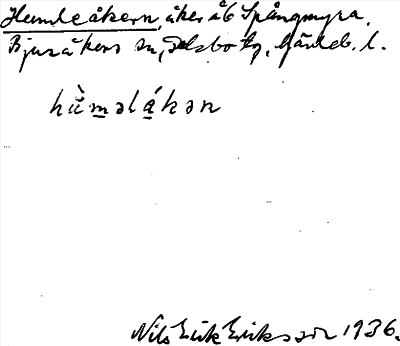 Humleåkern, åker åb Spångmyra,
Bjuråkers sn, Delsbo tg, Gävleb. l.
hù̈m̲əlák̲ən
Nils Erik Eriksson 1936.